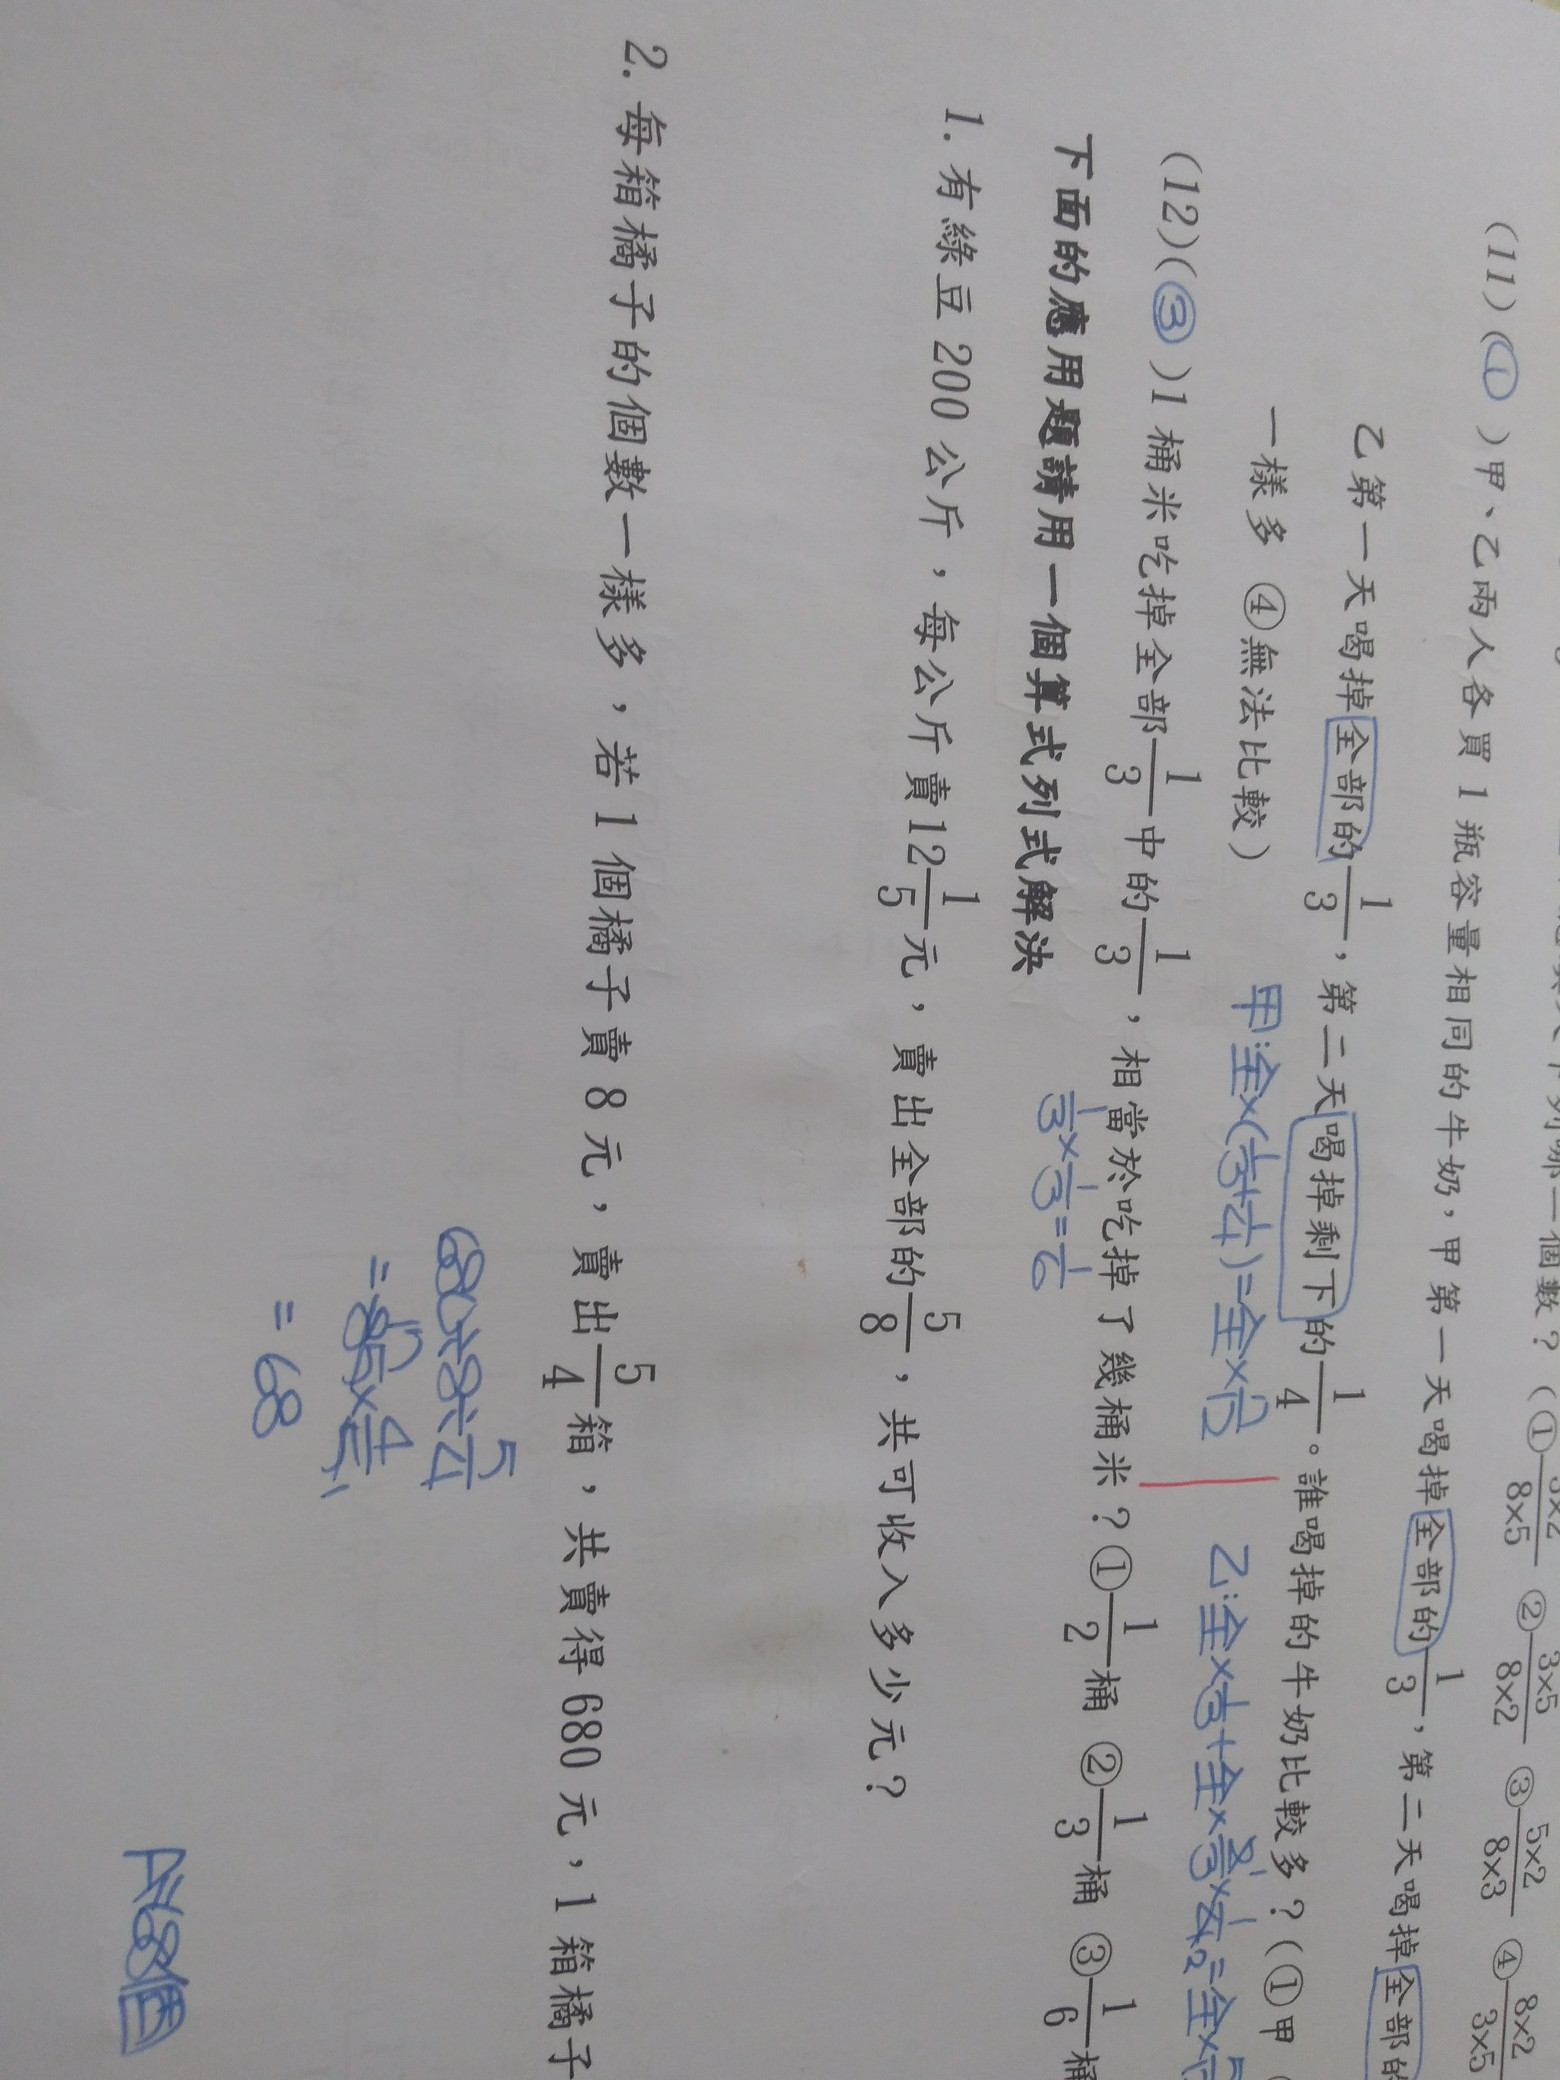 8×5 ② 3×5/8×2 ③ 5×2/8×3 ④ 8×2/3×5
(11)(①)甲、乙兩人各買1瓶容量相同的牛奶，甲第一天喝掉全部的1/3，第二天喝掉全部的
乙第一天喝掉全部的1/3，第二天喝掉剩下的1/4。誰喝掉的牛奶比較多？(①甲
一樣多 ④無法比較)
甲:全×(1/3+1/4)=全×7/12 乙:全×1/3+全×2/3×1/4=全×
(12)(③)1桶米吃掉全部1/3中的1/3，相當於吃掉了幾桶米？①1/2桶 ②1/3桶 ③1/6桶
1/3×1/3=1/6
下面的應用題請用一個算式列式解決
1.有綠豆200公斤，每公斤賣12 1/5元，賣出全部的5/8，共可收入多少元？
2.每箱橘子的個數一樣多，若1個橘子賣8元，賣出5/4箱，共賣得680元，1箱橘子
680÷8÷5/4
=85×4/5
=68
A:68個